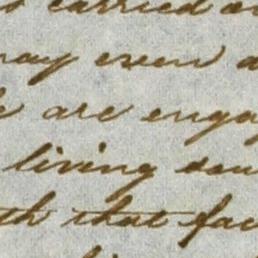 carried o
may even a
are enga
living sou
th that fac